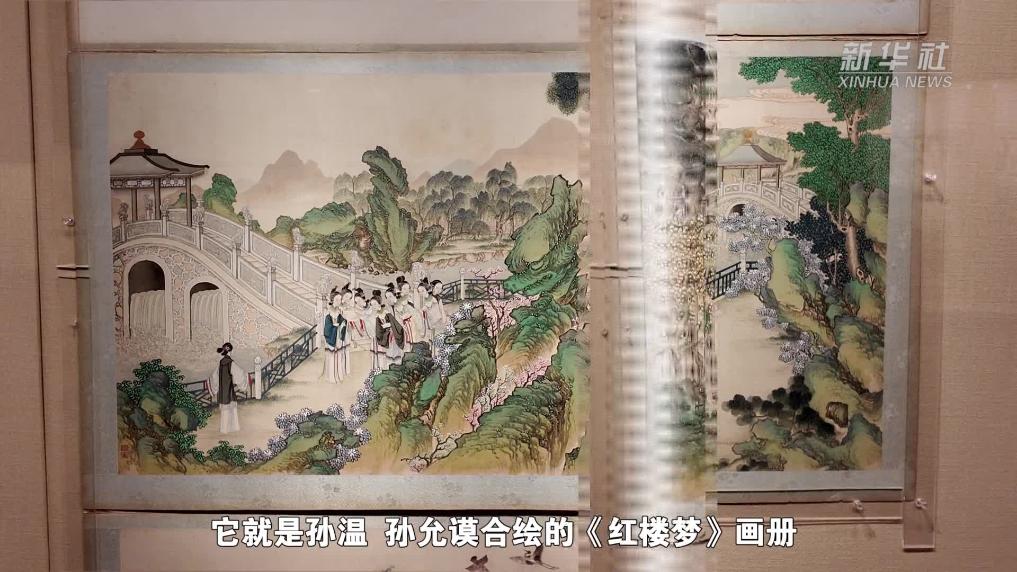 新华社
XINHUA NEWS
它就是孙温 孙允谟合绘的《红楼梦》画册